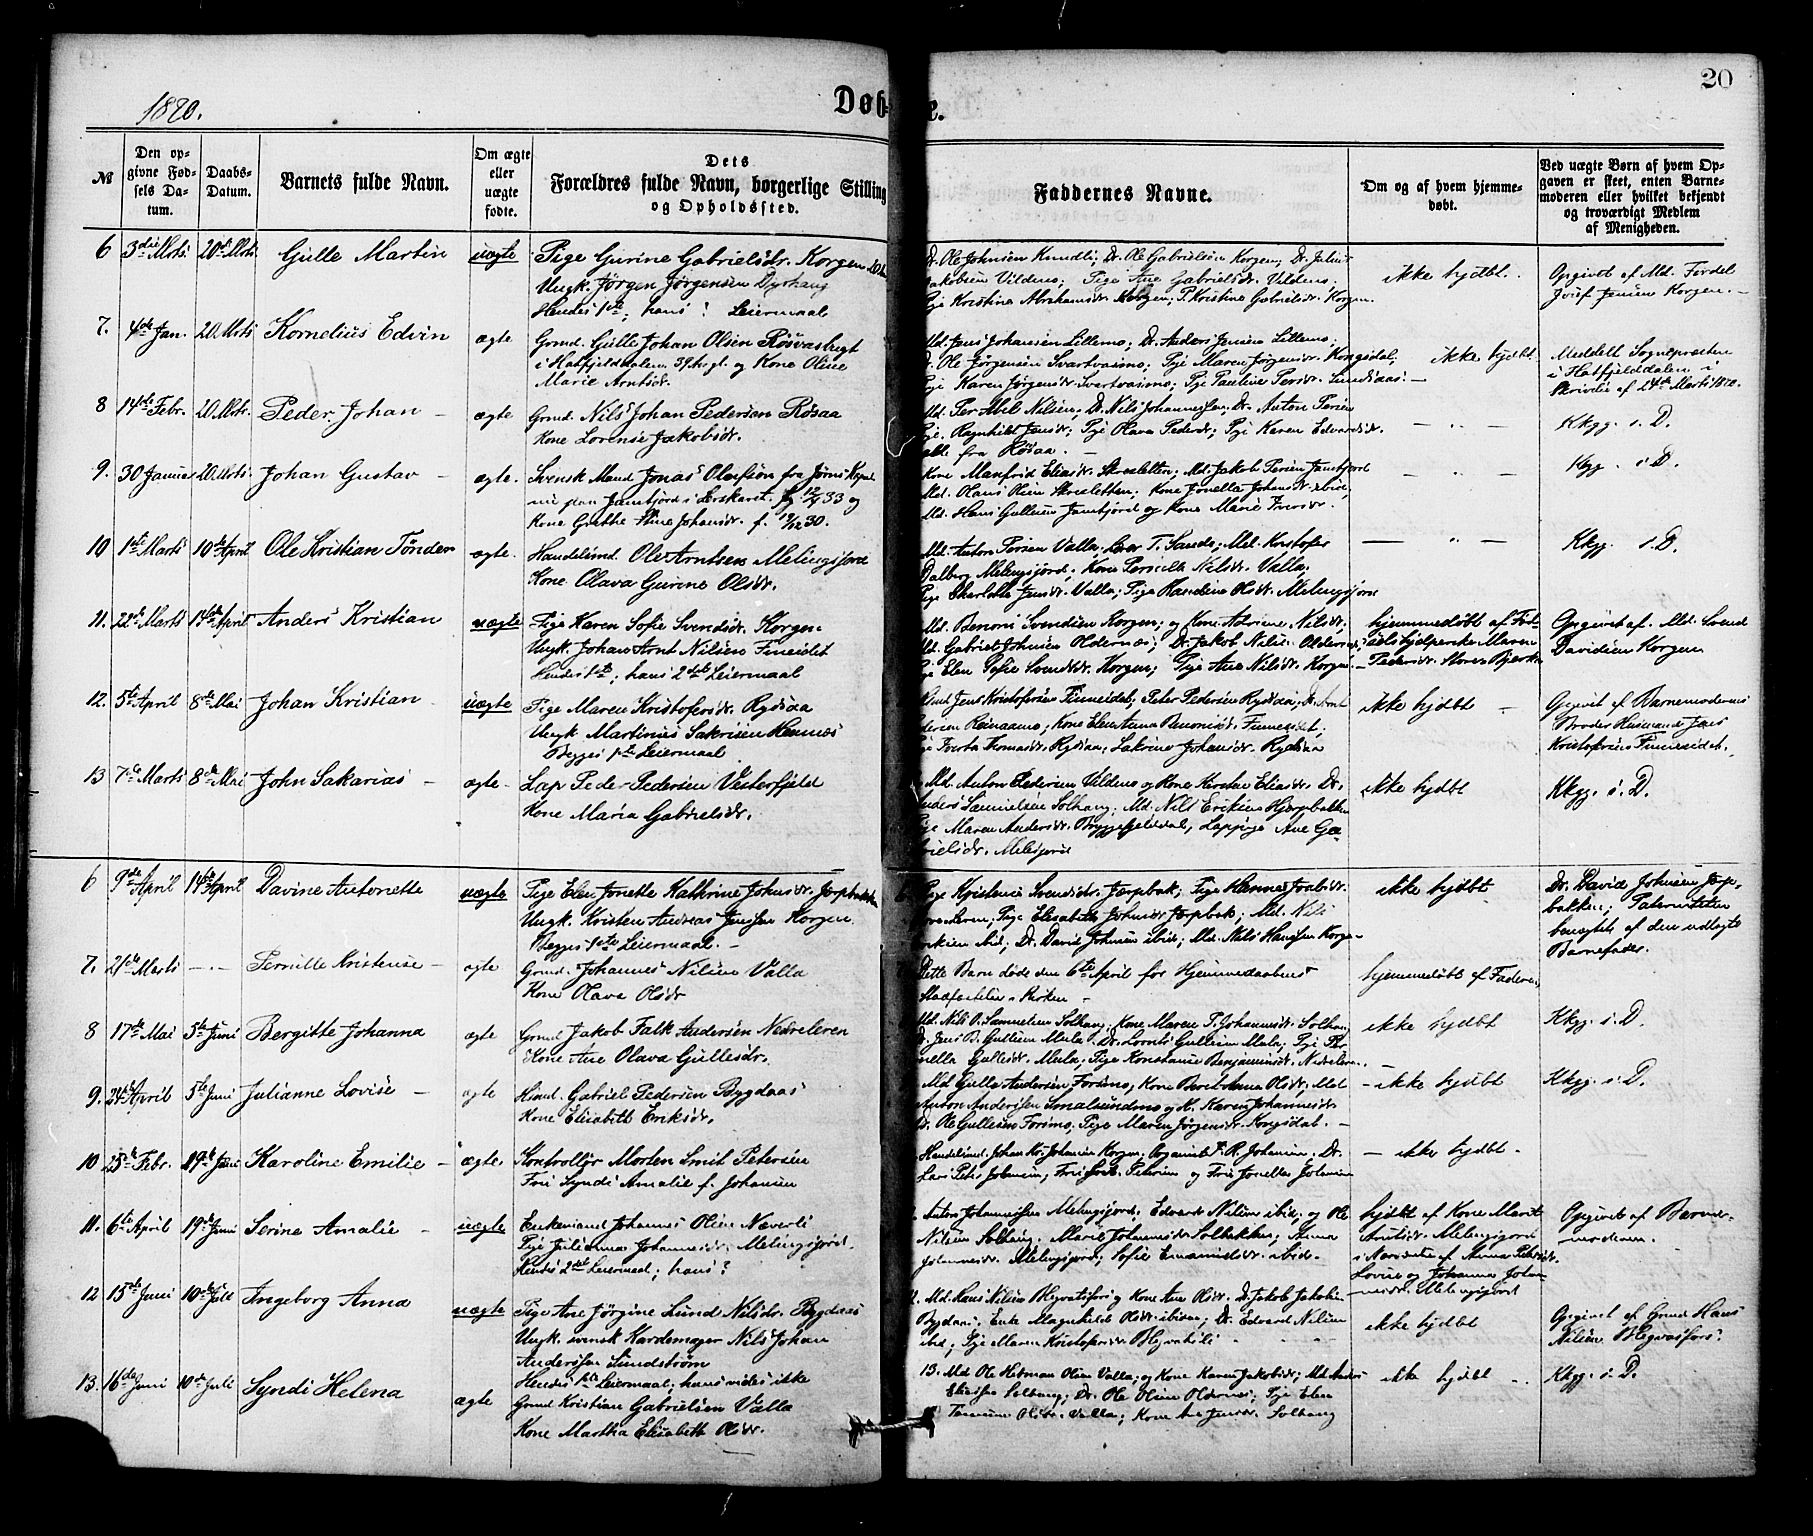 20
1870.
Døb
e.
№
Den op-
givne Fød-
sels Da-
tum.
Daabs-
Datum.
Barnets fulde Navn.
Om ægte
eller
uægte
fødte.
Dets
Forældres fulde Navn, borgerlige Stilling
og Opholdssted.
Faddernes Navne.
Om og af hvem hjemme-
døbt.
Ved uægte Børn af hvem Op-
gaven er skeet, enten Barne-
moderen eller hvilket bekjendt
og troværdigt Medlem
af Menigheden.
6 3die Marts 20de Marts Gulle Martin uægte Pige Gurine Gabrielsdr. Korgen
Ungk. Jørgen Jørgensen
Hendes 1ste; hans ? Leiermaal
Dr. Ole Johnsen Dr. Ole Gabrielsen Korgen; Dr. Johs
Jakobsen Vildmo; Pige Ane Gabrielsdr. Vildmo;
Pige Kristine Abrahamsdr. Korgen; P. Kristine Gabrielsdr. Korgen.
ikke hjdbt.
Opgivet af Md. Fordel
Josef Jensen Korgen.
7. 4de Jan. 20. Marts Kornelius Edvin ægte Grmd. Gulle Johan Olsen Røsvasbugt
i Hatfjelddalen 39 Aar gl. og Kone Oline
Marie Arntsdr.
Md. Jens Johansen Lillemo; Dr. Anders Jensen Lillemo;
Dr. Ole Jørgensen Svartvasmo; Pige Maren Jørgensdr. Kongsdal;
Pige Karen Jørgensdr. Svartvasmo; Pige Pauline Persdr.
ikke hjdbt.
Meddelt Sognepræsten
i Hatfjelddalen i
Skrivelse af 24de Marts 1870.
8 14de Febr. 20. Mrts. Peder Johan – ægte Grmd. Nils Johan Pedersen Røsaa
Kone Lorense Jakobsdr.
Md. Per Abel Nilsen; Dr. Nils Johannessen; Dr. Anton Persen
Pige Ragnhild Jensdr; Pige Olava Pedersdr; Pige Karen Edvardsdr.
alle fra Røsaa. –
– " –
Kkgg. i. D.
9. 30 Januar 20. Mrts. Johan Gustav – ægte. Svensk Mand Jonas Olofson fra Jørns
nu paa Jamtfjord i Lerskaret. f. 12/9 33 og
Kone Grethe Stine Johansdr. f. 19/12 30.
Kone Manfrid Eliasdr. Md. Jakob Persen Jamtfjord
Md. Hans Olsen Kone Jonella Johansdr. ibid;
Md. Hans Gullesen Jamtfjord og Kone Marie
– " –
Kgg. i D.
10 1ste Marts 10de April Ole Kristian Tønder ægte. Handelsmd. Ole Arntsen Melingsfjord
Kone Olava Gurine Olsdr.
Md. Anton Persen Valla; Md. Kristofer
Dalberg Melingsjord; Kone Pernille Nilsdr. Valla;
Pige Charlotte Jensdr. Valla; Pige Hansine Olsdr. Melingsfjord
– " –
Kkgg. i. D.
11. 22de Marts 14de April Anders Kristian uægte Pige Karen Sofie Svendsdr. Korgen.
Ungk. Johan Arnt Nilsen Fineidet
Hendes 1ste; hans 2det Leiermaal
Md. Benoni Svendsen Korgen; og Kone Adriane Nilsdr.
Md. Gabriel Johnsen Oldernes; Dr. Jakob Nilsen Oldernes;
Pige Elen Sofie Svendsdr. Korgen; Pige Ane Nilsdr. Korgen.
hjemmedøbt af Fød-
selshjelperske Maren
Pedersdr. Store Bjerka
Opgivet af Md. Svend
Davidsen Korgen
12. 5te April 8de Mai Johan Kristian uægte. Pige Maren Kristofersdr. Rydsaa
Ungk. Martinus Sakrisen Hemnes
Begges 1ste Leiermaal
Jens Kristofersen Finneidet; Peter Pedersen Rydsaa; Dr. Arnt
Kone Elen Anna Benonisdr. Finneidet;
Thomasdr. Rydsaa, Sakrine Johansdr. Rydsaa
ikke hjdbt –
Opgivet af Barnemoderens
Broder Husmand Jens
Kristofersen Finneidet.
13 7de Marts 8de Mai John Sakarias – ægte – Lap Peder Pedersen Vesterfjeld
Kone Maria Gabrielsdr.
Md. Anton Pedersen Vildmo og Kone Kirstine Eliasdr. Dr.
Anders Samuelsen Solhaug. Md. Nils Eriksen Hjerpbakken
Pige Maren Andersdr. Bryggefjelddal, Lappige Ane Ga-
brielsdr. Melesjord
ikke hjdbt
Kkgg. i. D.
6 9de April 14de April Davine Antonette uægte Pige Elen Jonette Kathrine Johnsdr. Jærpbakken
Ungk. Kristen Andreas Jensen Korgen.
Begges 1ste Leiermaal. –
Pige Kristense Svendsdr. Jærpbak; Pige Hanna
Pige Elisabeth Johnsdr. Jærpbak; Md. Nils
Eriksen ibid; Dr. David Johnsen ibid; Md. Nils Hansen Korgen
ikke hjdbt
Dr. David Johnsen Jærp-
bakken; Paterniteten
benegtet af den udlagte
Barnefader.
7. 21de Marts – " – Pernille Kristense – ægte Grmd. Johannes Nilsen Valla
Kone Olava Olsdr
Dette Barn døde den 6te April før Hjemmedaabens
Stadfæstelse i Kirken –
hjemmedøbt af Faderen
8 17de Mai 5te Juni Bergitte Johanna ægte Grmd. Jakob Falk Andersen Nedreleren
Kone Ane Olava Gullesdr.
Md. Nils O. Samuelsen Solhaug. Kone Maren T. Johannesdr. Solhaug
Dr. Jens B. Gullesen Mula. Dr. Lornts Gullesen Mula; Pige Per-
nella Gullesdr. Mula; Pige Konstanse Benjaminsdr. Nedreleren.
ikke hjdbt
Kkgg. i. D.
9. 24de April 5te Juni Julianne Lovise – ægte Hsmd. Gabriel Pedersen Bygdaas
Kone Elisabeth Eriksdr.
Md. Gulle Andersen Forsmo; Kone Berit Anna Olsdr. Md.
Anton Andersen Smalsundmo og K. Karen Johannesdr.
Dr. Ole Gullesen Forsmo; Pige Maren Jørgensdr. Kongsdal. –
– ikke hjdbt
Kkgg. i. D.
10 25de Febr. 19de Juni Karoline Emilie – ægte. Kontrollør Morten Smit Petersen
Fru Syndi Amalie f. Johansen
Handelsmd. Johan Kr. Johansen Korgen; Organist F. R. Johansen. Dr.
Lars Peter Johansen; Petersen og Frøk. Jonella Johansen
– ikke hjdbt.
11. 6te April 19de Juni Serine Amalie – uægte Enkemand Johannes Olsen Næverli
Pige Julianna Johannesdr. Melingsfjord.
Hendes 2det Leiermaal; hans ?
Anton Johannessen Melingsjord; Edvard Nilsen ibid; og Ole
Nilsen Solhaug. Marie Johannesdr. Solbakken; Anna
Johannesdr. Melingsjord; Sofie Emanuelsdr. ibid.
hjdbt af Kone Marit
Arntsdr. Melingsjord
i Nærværelse af Anna Pedersdr.
Lovise og Johanna Johan-
nesdr. Melingsjord
Opgivet af Barne-
moderen.
12 15de Juni 10de Juli Ingeborg Anna uægte Pige Ane Jørgine Lund Nilsdr. Bygdaas
Ungk. svensk Kardemager Nils Johan
Andersson Sundstrøm
Hendes 1ste Leiermaal; hans vides ikke
Md. Hans Nilsen Blegvasfors og Kone Ane Olsdr. Dr. Jakob Jakobsen
Bygdaas. Enke Magnhild Olsdr ibidem; Dr. Edvard Nilsen
ibid; Pige Maren Kristofersdr. Blegvasli
ikke hjdbt
Opgivet af Grmd Hans
Nilsen Blegvasfors.
13. 16de Juni 10de Juli Syndi Helena ægte Grmd Kristian Gabrielsen Valla
Kone Martha Elisabeth Olsdr.
13. Md. Ole Hitman Olsen Valla; og Kone Karen Jakobsdr; Md. Anders
Eliassen Solhaug; Dr. Ole Olsen Oldernes; Pige Elen
Olsdr. Valla; Kone Ane Jensdr. Solhaug
ikke hjdbt –
Kkgg. i. D.